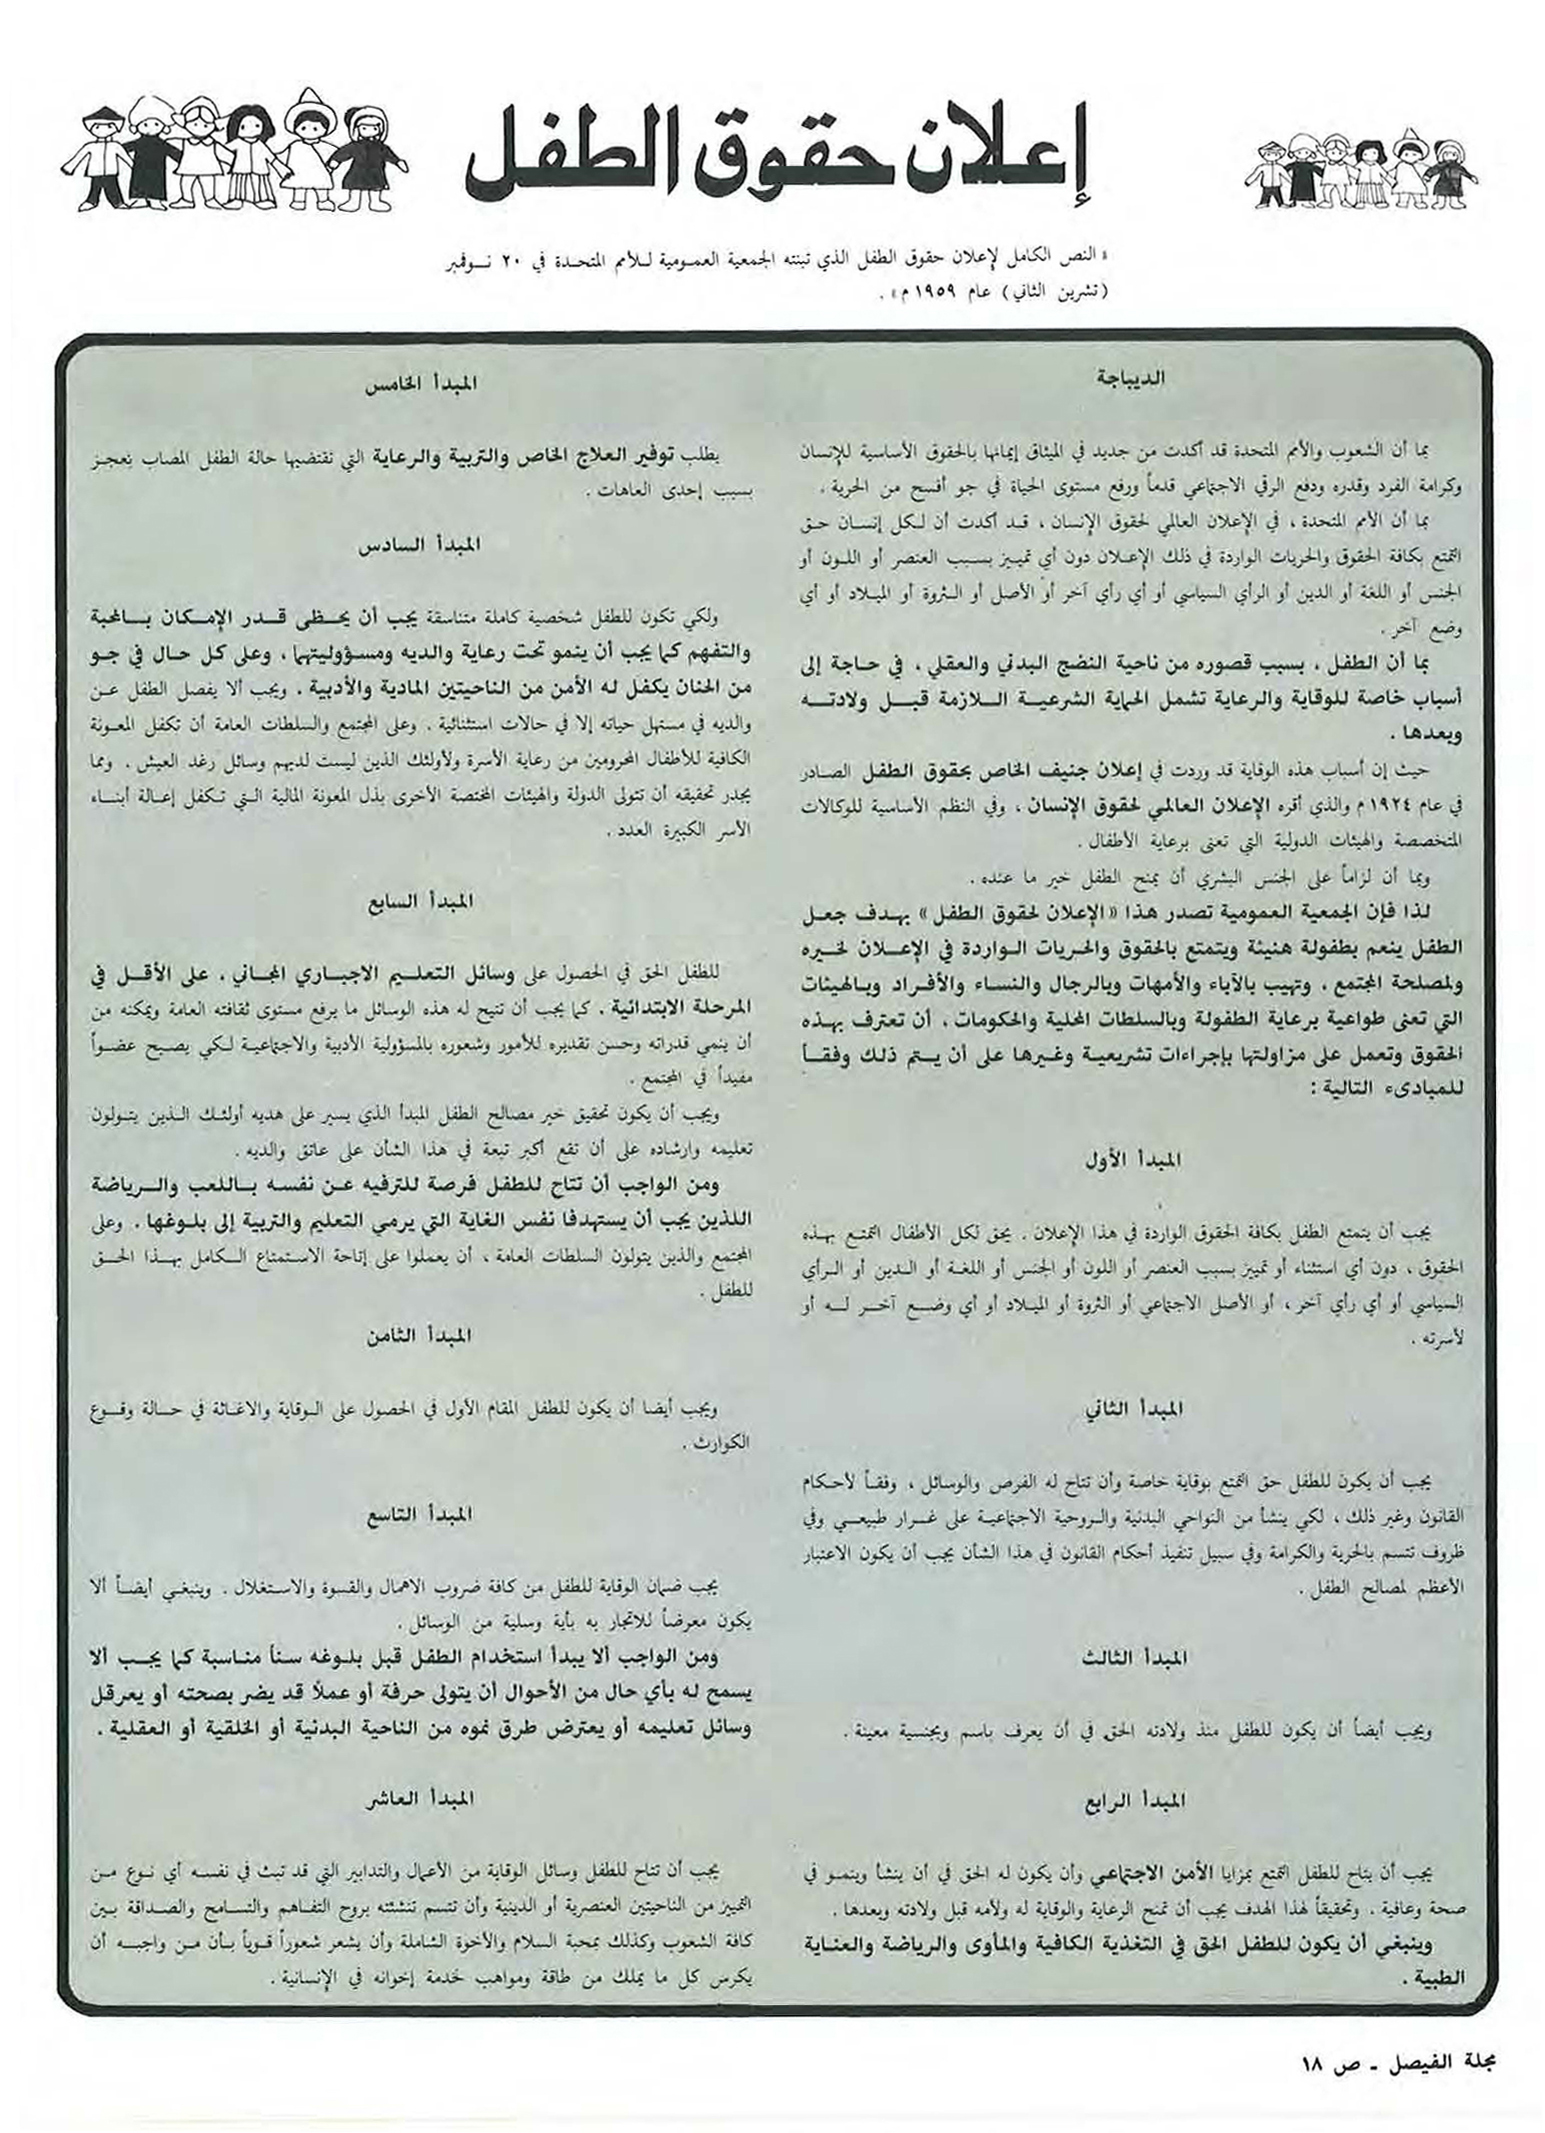 إعلان حقوق الطفل
« النص الكامل لإعلان حقوق الطفل الذي تبنته الجمعية العمومية للأمم المتحدة في ٢٠ نوفمبر
(تشرين الثاني) عام ١٩٥٩ م» .
الديباجة
بما أن الشعوب والأمم المتحدة قد أكدت من جديد في الميثاق إيمانها بالحقوق الأساسية للإنسان
وكرامة الفرد وقدره ودفع الرقي الاجتماعي قدماً ورفع مستوى الحياة في جو أفسح من الحرية .
بما أن الأمم المتحدة ، في الإعلان العالمي لحقوق الإنسان ، قد أكدت أن لكل إنسان حق
التمتع بكافة الحقوق والحريات الواردة في ذلك الإعلان دون أي تمييز بسبب العنصر أو اللون أو
الجنس أو اللغة أو الدين أو الرأي السياسي أو أي رأي آخر أو الأصل أو الثروة أو الميلاد أو أي
وضع آخر .
بما أن الطفل ، بسبب قصوره من ناحية النضج البدني والعقلي ، في حاجة إلى
أسباب خاصة للوقاية والرعاية تشمل الحماية الشرعية اللازمة قبل ولادته
وبعدها .
حيث إن أسباب هذه الوقاية قد وردت في إعلان جنيف الخاص بحقوق الطفل الصادر
في عام ١٩٢٤ م والذي أقره الإعلان العالمي لحقوق الإنسان ، وفي النظم الأساسية للوكالات
المتخصصة والهيئات الدولية التي تعنى برعاية الأطفال .
وبما أن لزاماً على الجنس البشري أن يمنح الطفل خير ما عنده .
لذا فإن الجمعية العمومية تصدر هذا «الإعلان لحقوق الطفل» بهدف جعل
الطفل ينعم بطفولة هنيئة ويتمتع بالحقوق والحريات الواردة في الإعلان لخيره
ولمصلحة المجتمع ، وتهيب بالآباء والأمهات وبالرجال والنساء والأفراد وبالهيئات
التي تعنى طواعية برعاية الطفولة وبالسلطات المحلية والحكومات ، أن تعترف بهذه
الحقوق وتعمل على مزاولتها بإجراءات تشريعية وغيرها على أن يتم ذلك وفقاً
للمبادىء التالية :
المبدأ الأول
يجب أن يتمتع الطفل بكافة الحقوق الواردة في هذا الإعلان . يحق لكل الأطفال التمتع بهذه
الحقوق ، دون أي استثناء أو تمييز بسبب العنصر أو اللون أو الجنس أو اللغة أو الدين أو الرأي
السياسي أو أي رأي آخر ، أو الأصل الاجتماعي أو الثروة أو الميلاد أو أي وضع آخر له أو
لأسرته .
المبدأ الثاني
يجب أن يكون للطفل حق التمتع بوقاية خاصة وأن تتاح له الفرص والوسائل ، وفقاً لأحكام
القانون وغير ذلك ، لكي ينشأ من النواحي البدنية والروحية الاجتماعية على غرار طبيعي وفي
ظروف تتسم بالحرية والكرامة وفي سبيل تنفيذ أحكام القانون في هذا الشأن يجب أن يكون الاعتبار
الأعظم لمصالح الطفل .
المبدأ الثالث
ويجب أيضاً أن يكون للطفل منذ ولادته الحق في أن يعرف باسم وبجنسية معينة .
المبدأ الرابع
يجب أن يتاح للطفل التمتع بمزايا الأمن الاجتماعي وأن يكون له الحق في أن ينشأ وينمو في
صحة وعافية ، وتحقيقاً لهذا الهدف يجب أن تمنح الرعاية والوقاية له ولأمه قبل ولادته وبعدها .
وينبغي أن يكون للطفل الحق في التغذية الكافية والمأوى والرياضة والعناية
الطبية .
المبدأ الخامس
يطلب توفير العلاج الخاص والتربية والرعاية التي تقتضيها حالة الطفل المصاب بعجز
بسبب إحدى العاهات .
المبدأ السادس
ولكي تكون للطفل شخصية كاملة متناسقة يجب أن يحظى قدر الإمكان بالمحبة
والتفهم كما يجب أن ينمو تحت رعاية والديه ومسؤوليتهما ، وعلى كل حال في جو
من الحنان يكفل له الأمن من الناحيتين المادية والأدبية . ويجب ألا يفصل الطفل عن
والديه في مستهل حياته إلا في حالات استثنائية . وعلى المجتمع والسلطات العامة أن تكفل المعونة
الكافية للأطفال المحرومين من رعاية الأسرة ولأولئك الذين ليست لديهم وسائل رغد العيش . ومما
يجدر تحقيقه أن تتولى الدولة والهيئات المختصة الأخرى بذل المعونة المالية التي تكفل إعالة أبناء
الأسر الكبيرة العدد .
المبدأ السابع
للطفل الحق في الحصول على وسائل التعليم الاجباري المجاني ، على الأقل في
المرحلة الابتدائية . كما يجب أن تتيح له هذه الوسائل ما يرفع مستوى ثقافته العامة ويمكنه من
أن ينمي قدراته وحسن تقديره للأمور وشعوره بالمسؤولية الأدبية والاجتماعية لكي يصبح عضواً
مفيداً في المجتمع .
ويجب أن يكون تحقيق خير مصالح الطفل المبدأ الذي يسير على هديه أولئك الذين يتولون
تعليمه وارشاده على أن تقع أكبر تبعة في هذا الشأن على عاتق والديه .
ومن الواجب أن تتاح للطفل فرصة للترفيه عن نفسه باللعب والرياضة
اللذين يجب أن يستهدفا نفس الغاية التي يرمي التعليم والتربية إلى بلوغها . وعلى
المجتمع والذين يتولون السلطات العامة ، أن يعملوا على إتاحة الاستمتاع الكامل بهذا الحق
للطفل .
المبدأ الثامن
ويجب أيضا أن يكون للطفل المقام الأول في الحصول على الوقاية والاغاثة في حالة وقوع
الكوارث .
المبدأ التاسع
يجب ضمان الوقاية للطفل من كافة ضروب الاهمال والقسوة والاستغلال . وينبغي أيضاً ألا
يكون معرضاً للاتجار به بأية وسلية من الوسائل .
ومن الواجب ألا يبدأ استخدام الطفل قبل بلوغه سناً مناسبة كما يجب ألا
يسمح له بأي حال من الأحوال أن يتولى حرفة أو عملاً قد يضر بصحته أو يعرقل
وسائل تعليمه أو يعترض طرق نموه من الناحية البدنية أو الخلقية أو العقلية .
المبدأ العاشر
يجب أن تتاح للطفل وسائل الوقاية من الأعمال والتدابير التي قد تبث في نفسه أي نوع من
التمييز من الناحيتين العنصرية أو الدينية وأن تتسم تنشئته بروح التفاهم والتسامح والصداقة بين
كافة الشعوب وكذلك بمحبة السلام والأخوة الشاملة وأن يشعر شعوراً قوياً بأن من واجبه أن
يكرس كل ما يملك من طاقة ومواهب خدمة إخوانه في الإنسانية .
مجلة الفيصل - ص ١٨